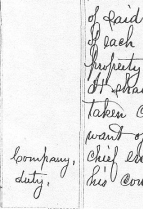 of said
of each
property
It shall
taken
want of
Company,
chief
duty,
his